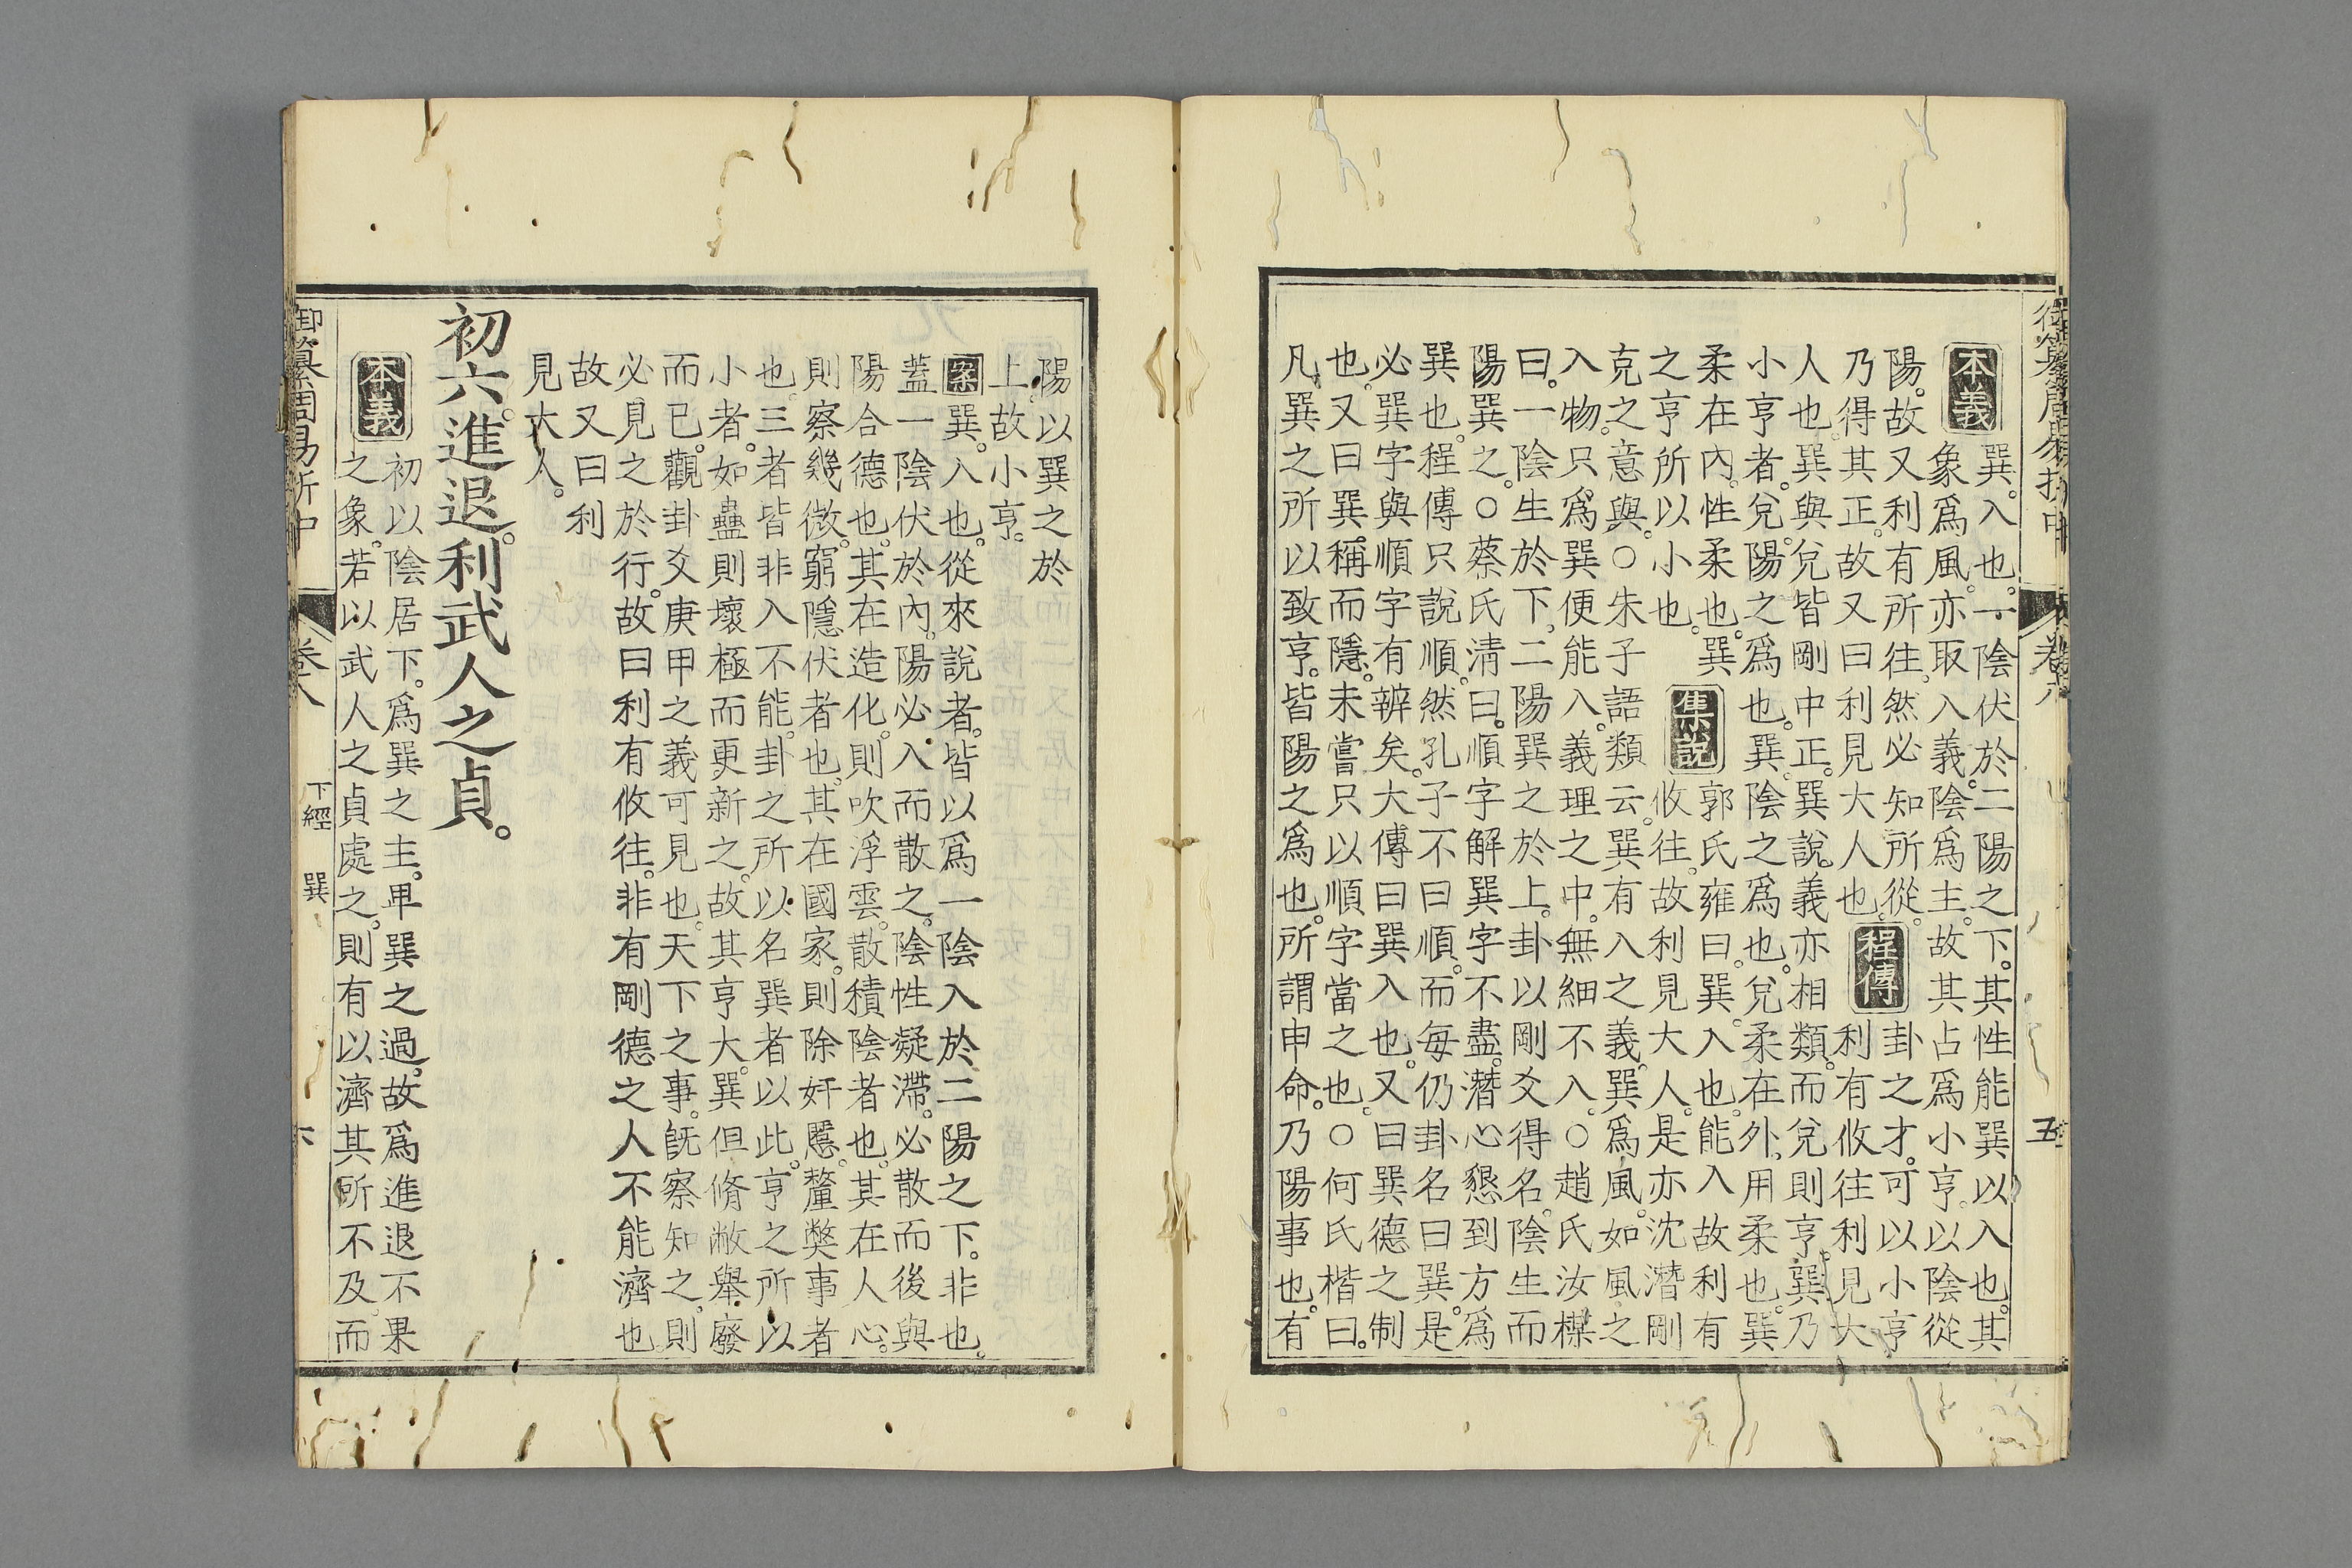 本義
巽。入也。一陰伏於二陽之下。其性能巽以入也。其
象爲風。亦取入義。陰爲主。故其占爲小亨。以陰從
陽。故又利有所往。然必知所從。
乃得其正。故又曰利見大人也。
程傳
卦之才。可以小亨
利有攸往利見大
人也。巽與兌皆剛中正。巽說。義亦相類。而兌則亨。巽乃
小亨者。兌。陽之爲也。巽。陰之爲也。兌柔在外。用柔也。巽
柔在內。性柔也。巽
之亨所以小也。
集說
郭氏雍曰。巽。入也。能入故利有
攸往。故利見大人。是亦沈潛剛
克之意與。○朱子語類云。巽有入之義。巽爲風。如風之
入物。只爲巽便能入。義理之中。無細不入。○趙氏汝楳
曰。一陰生於下。二陽巽之於上。卦以剛爻得名。陰生而
陽巽之。○蔡氏清曰。順字解巽字不盡。潛心懇到方爲
巽也。程傳只說順。然孔子不曰順。而每仍卦名曰巽。是
必巽字與順字有辨矣。大傳曰。巽入也。又曰巽德之制
也。又曰巽。稱而隱。未嘗只以順字當之也。○何氏楷曰。
凡巽之所以致亨。皆陽之爲也。所謂申命。乃陽事也。有
陽。以巽之於
上。故小亨。
案
巽。入也。從來說者。皆以爲一陰入於二陽之下。非也。
蓋一陰伏於內。陽必入而散之。陰性凝滯。必散而後與
陽合德也。其在造化。則吹浮雲。散積陰者也。其在人心。
則察幾微。窮隱伏者也。其在國家。則除奸慝。釐弊事者
也。三者皆非入不能。卦之所以名巽者以此。亨之所以
小者。如蠱則壞極而更新之。故其亨大。巽但脩敝舉廢
而已。觀卦爻庚甲之義可見也。天下之事。旣察知之。則
必見之於行。故曰利有攸往。非有剛德之人不能濟也。
故又曰利
見大人。
初六。進退。利武人之貞。
本義
初以陰居下。爲巽之主。卑巽之過。故爲進退不果
之象。若以武人之貞處之。則有以濟其所不及。而
御纂周易折中
卷八
下經
巽